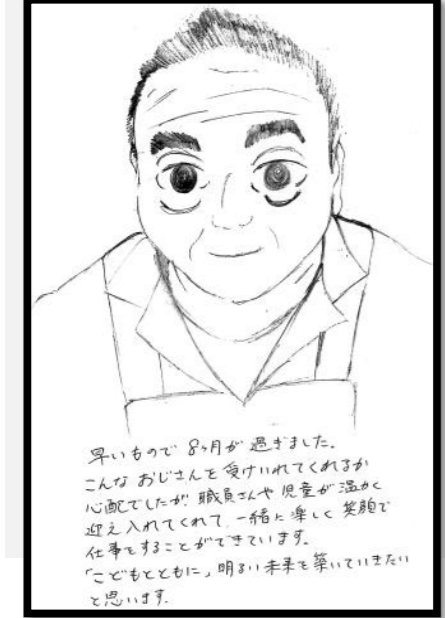 早いもので 8ヶ月が 過ぎました。
こんな おじさんを 受けいれてくれるか
心配でしたが、職員さんや 児童が 温かく
迎え入れてくれて、一緒に 楽しく 笑顔で
仕事をすることができています。
「こどもとともに」明るい 未来を 築いていきたい
と思います。